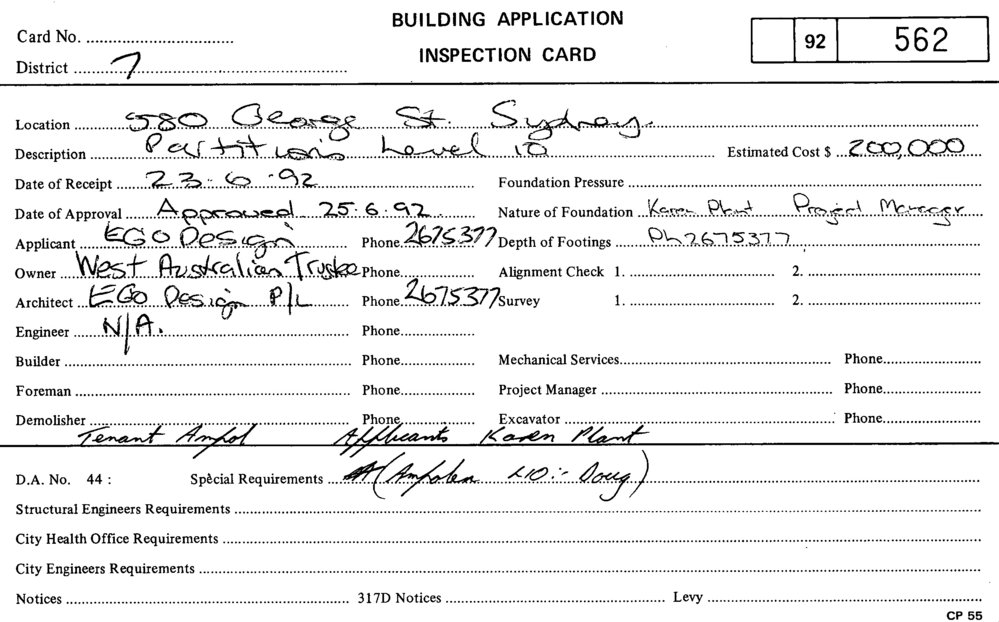 BUILDING APPLICATION
INSPECTION CARD
Card No.
District 7
92 562
Location 580 George St. Sydney.
Description Partitions Level 10 Estimated Cost $ 200,000
Date of Receipt 23.6.92 Foundation Pressure
Date of Approval Approved 25.6.92 Nature of Foundation Karen Plant Project Manager
Applicant EGO Design Phone 2675377 Depth of Footings Ph 2675377
Owner West Australian Trustee Phone Alignment Check 1. 2.
Architect EGO Design P/L Phone 2675377 Survey 1. 2.
Engineer N/A. Phone
Builder Phone Mechanical Services Phone
Foreman Phone Project Manager Phone
Demolisher Phone Excavator Phone
Tenant Ampol Applicants Karen Plant
D.A. No. 44 : Special Requirements (L10:- Doug)
Structural Engineers Requirements
City Health Office Requirements
City Engineers Requirements
Notices 317D Notices Levy
CP 55